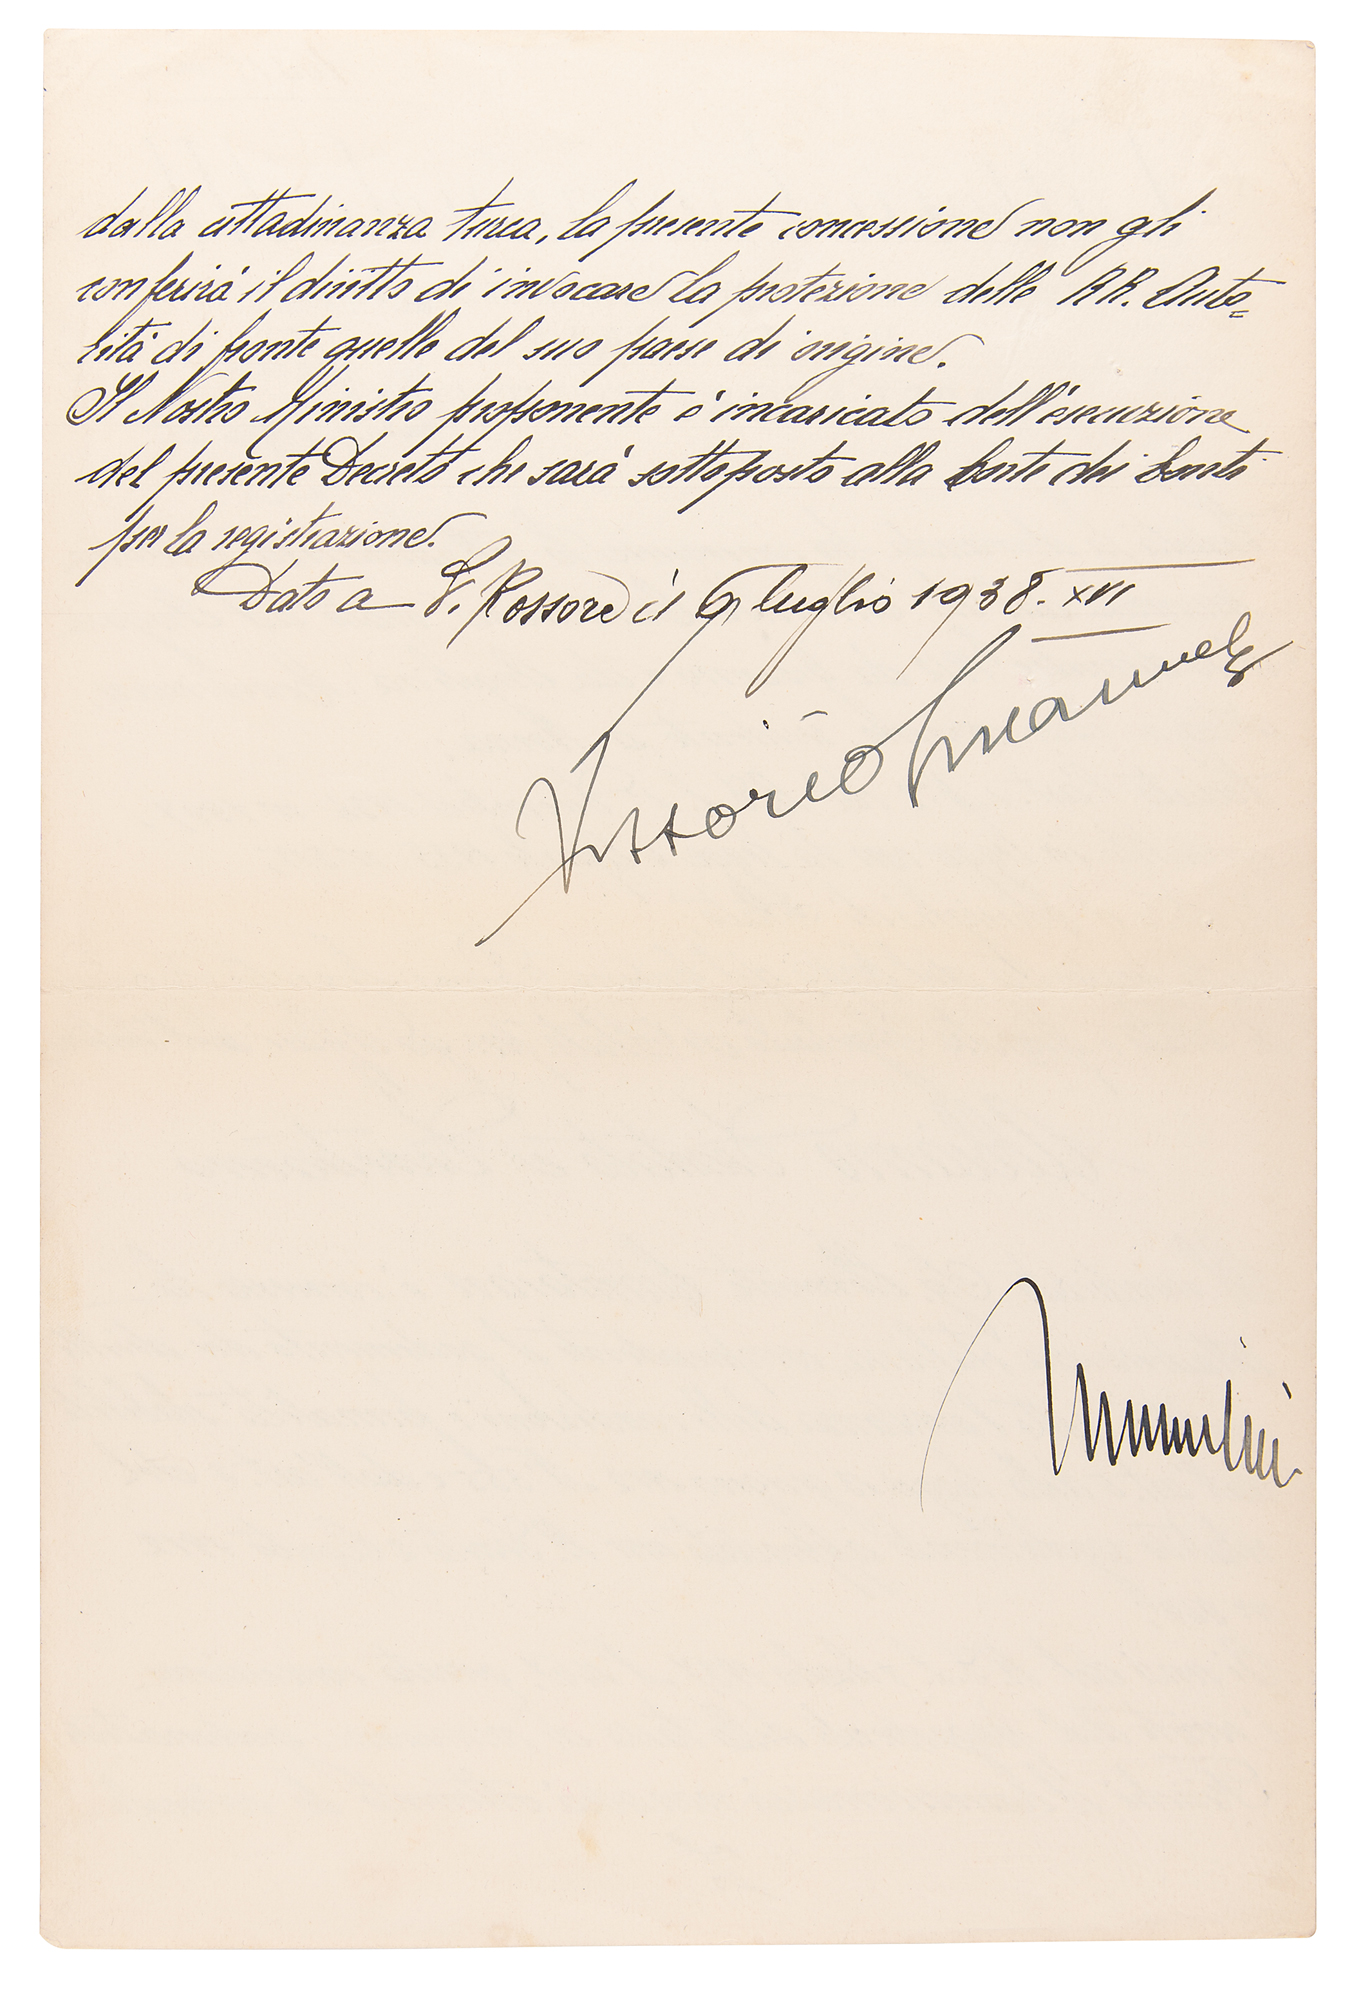 dalla cittadinanza turca, la presente concessione non gli
conferirà il diritto di invocare la protezione delle RR. Auto=
rità di fronte quelle del suo paese di origine.
Il Nostro Ministro proponente è incaricato dell'esecuzione
del presente Decreto che sarà sottoposto alla Corte dei Conti
per la registrazione.
Dato a S. Rossore il 9 luglio 1938. XVI
Vittorio Emanuele
Mussolini